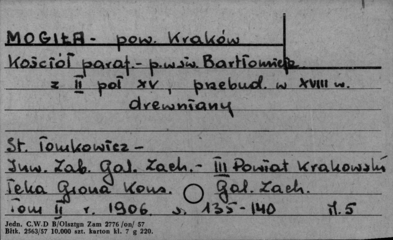 MOGIŁA - pow. Kraków
Kościół paraf. - p.w. św. Bartłomieja
z II poł XV, przebud. w XVIII w.
drewniany
St. Tomkowicz -
Inw. Zab. Gal. Zach. - III Powiat Krakowski
Teka Grona Kons. Gal. Zach.
Tom II r. 1906. s. 135-140 il. 5
Jedn. C.W.D B/Olsztyn Zam 2776 /on/ 57
Bltk. 2563/57 10.000 szt. karton kl. 7 g 220.